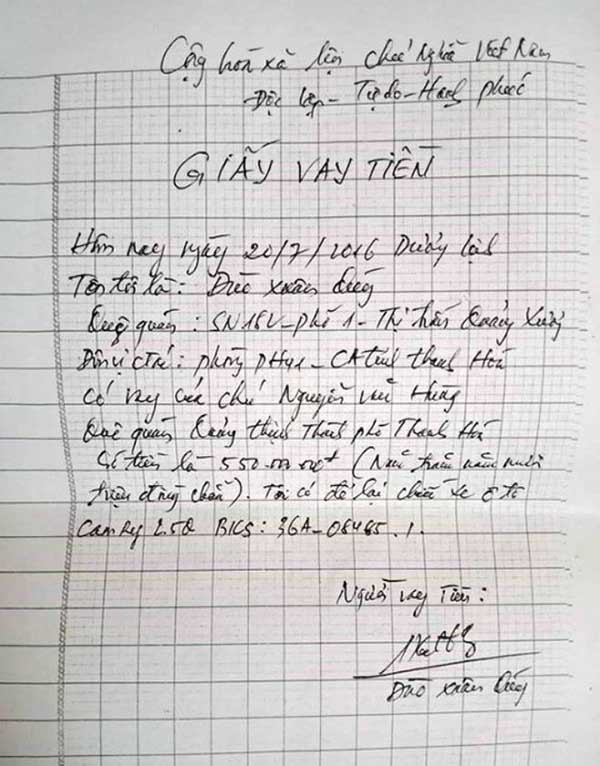 Cộng hòa xã hội chủ nghĩa Việt Nam
Độc lập - Tự do - Hạnh phúc
GIẤY VAY TIỀN
Hôm nay ngày 20/7/2016 Dương lịch
Tên tôi là: Đào Xuân
Quê quán: SN 18V - phố 1 - Thị trấn Quảng Xương
Đơn vị ctác: phòng PH41 - CA tỉnh Thanh Hoá
Có vay của chú Nguyễn Văn Hùng
Quê quán Quảng Thịnh Thành phố Thanh Hoá
Số tiền là 550.000.000đ (Năm trăm năm mươi
triệu đồng chẵn). Tôi có để lại chiếc xe ô tô
CamRy 2.5Q BKS: 36A-08485./.
Người vay tiền:
Đào Xuân